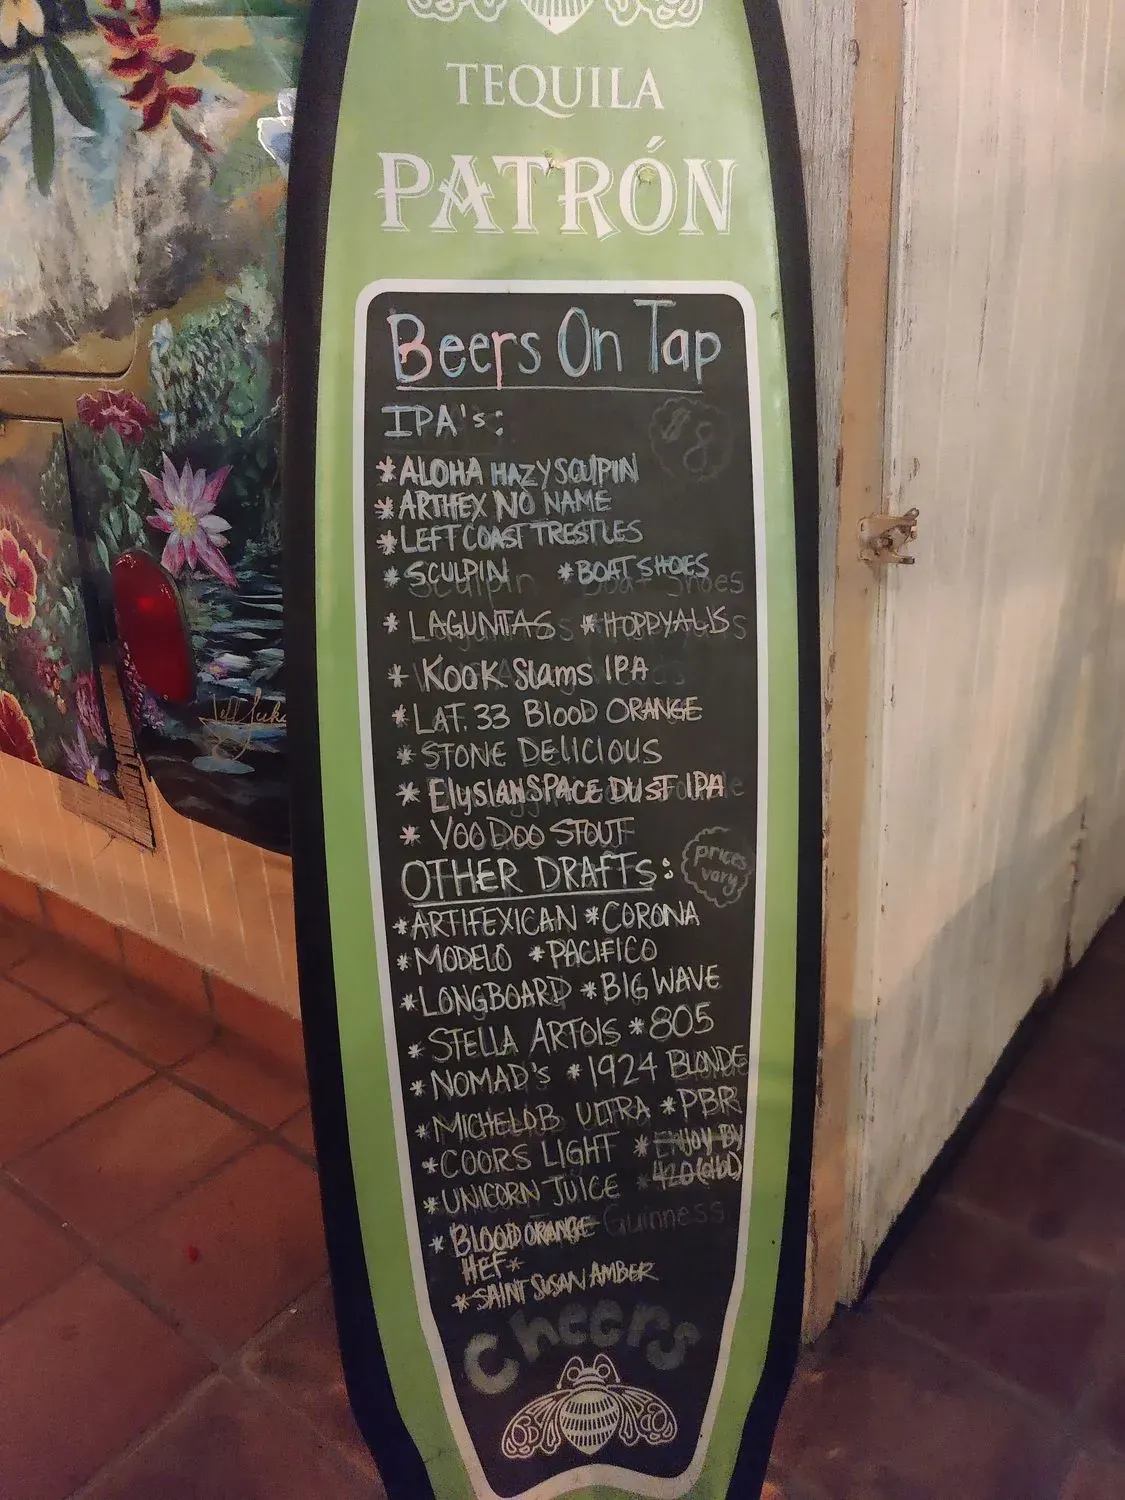 TEQUILA
PATRÓN
Beers On Tap
IPA's:
$8
* ALOHA HAZY SCULPIN
* ARTIFEX NO NAME
* LEFT COAST TRESTLES
* SCULPIN * BOAT SHOES
* LAGUNITAS * HOPPYALIS
* KOOK SLAMS IPA
* LAT. 33 BLOOD ORANGE
* STONE DELICIOUS
* ELYSIAN SPACE DUST IPA
* VOODOO STOUT
OTHER DRAFTS:
prices vary
* ARTIFEXICAN * CORONA
* MODELO * PACIFICO
* LONGBOARD * BIG WAVE
* STELLA ARTOIS * 805
* NOMAD'S * 1924 BLONDE
* MICHELOB ULTRA * PBR
* COORS LIGHT * ENJOY BY
* UNICORN JUICE * 420
* BLOOD ORANGE Guinness
HEF *
* SAINT SUSAN AMBER
Cheers